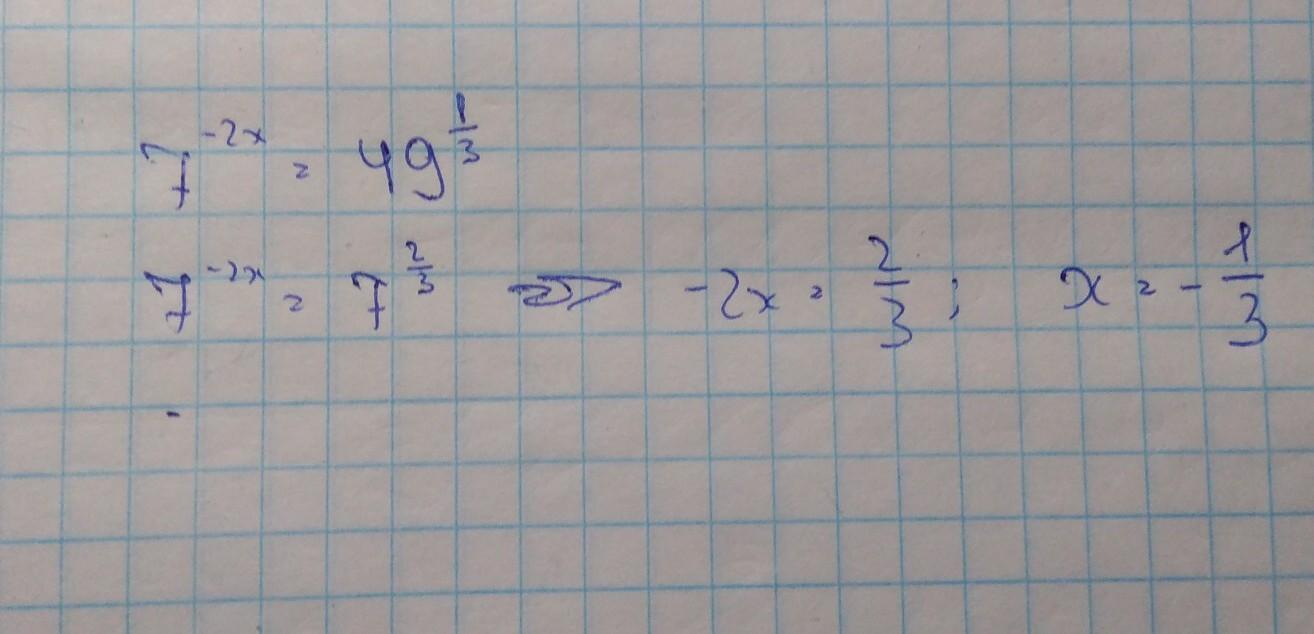 7^{-2x} = 49^{\frac{1}{3}}
7^{-2x} = 7^{\frac{2}{3}} ⇒ -2x = \frac{2}{3}; x = -\frac{1}{3}